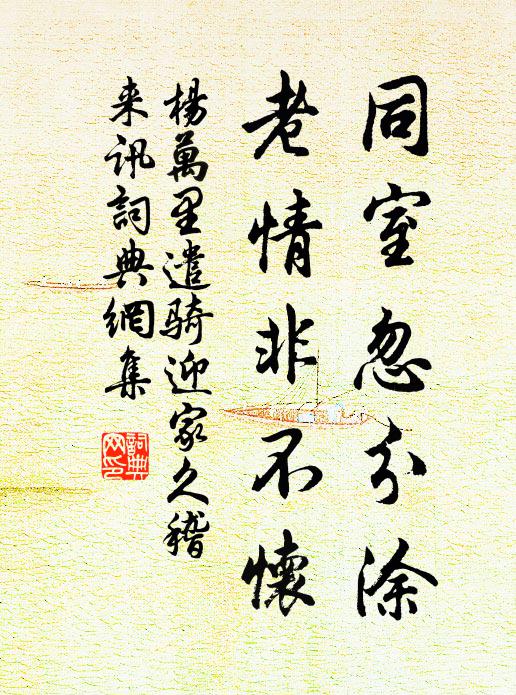 同室忽分涂
老情非不懷
楊萬里遣騎迎家久稽
来訊詞典網集
詞典
网印